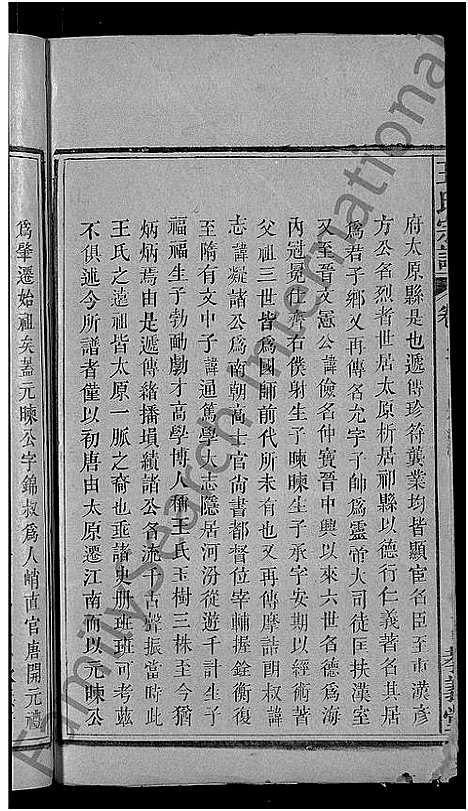 王氏宗譜
卷
府太原縣是也遞傳珍符龔業均皆顯宦名臣至東漢彥
方公名烈者世居太原析居祁縣以德行仁義著名其居
爲君子鄉又再傳名允字子師爲靈帝大司徒匡扶漢室
又至晉文憲公諱儉名仲寶晉中興以來六世名德爲海
內冠冕仕齊右僕射生子暕暕生子承字安期以經術著
父祖三世皆爲國師前代所未有也又再傳摩詰朗叔諱
志諱凝諸公爲南朝高士官尚書都督位宰輔握銓衡復
至隋有文中子諱通篤學大志隱居河汾從遊千計官
福福生子勃勔勮才高學博人稱王氏玉樹三株至今猶
炳炳焉由是遞傳緒播塤績諸公名流千古聲振當時此
王氏之遠祖皆太原一脈之裔也垂諸史册班班可考茲
不俱述今所譜者僅以初唐由太原遷江南而以元暕公
爲肇遷始祖矣蓋元暕公字錦叔爲人峭直官唐開元禮
FamilySearch International